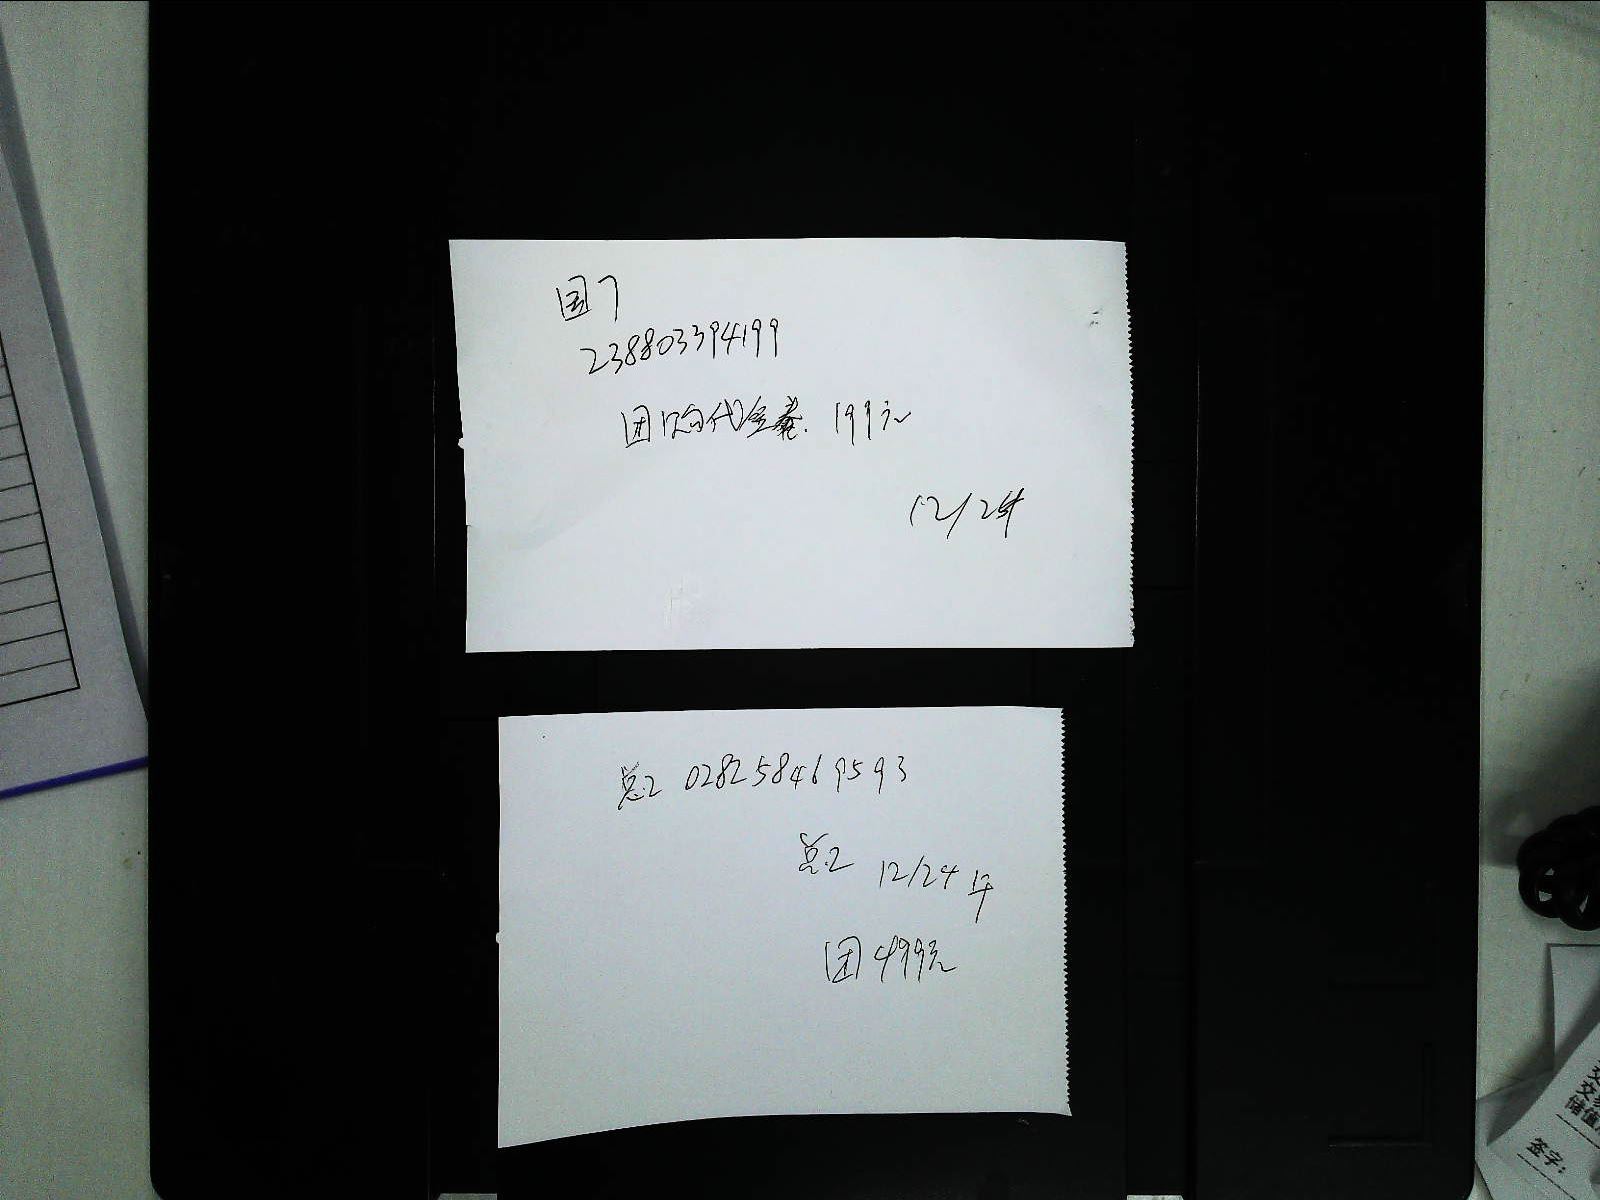 国7
238803394199
团购代金卷.199元
12/24
总2 028258469593
总2 12/24
团499元
签字: